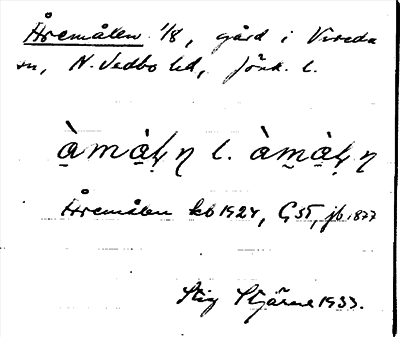 Åremålen 1/8, gård i Vireda
sn, N. Vedbo hd, Jönk. l.
l.
Åremålen kb 1924, GST, jb 1877
Stig Stjärne 1933.